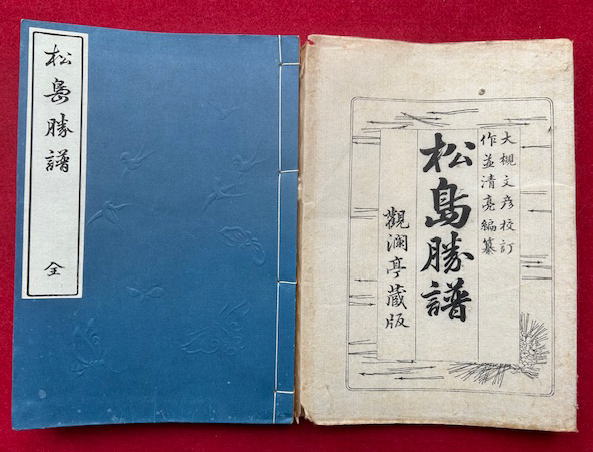 松島勝譜
全
大槻文彦校訂
作並清亮編纂
松島勝譜
觀瀾亭蔵版